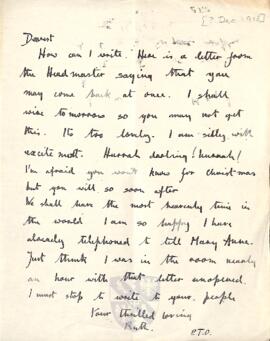 [? Dec. 1918]
Dearest
How can I write. Here is a letter from
the Headmaster saying that you
may come back at once. I shall
wire tomorrow so you may not get
this. Its too lovely. I am silly with
excitement. Hurrah darling! hurrah!
I'm afraid you won't know for Christmas
but you will so soon after
We shall have the most heavenly time in
the world I am so happy I have
already telephoned to tell Mary Anne.
Just think I was in the room nearly
an hour with that letter unopened.
I must stop to write to your people
Your thrilled loving
Ruth.
P.T.O.